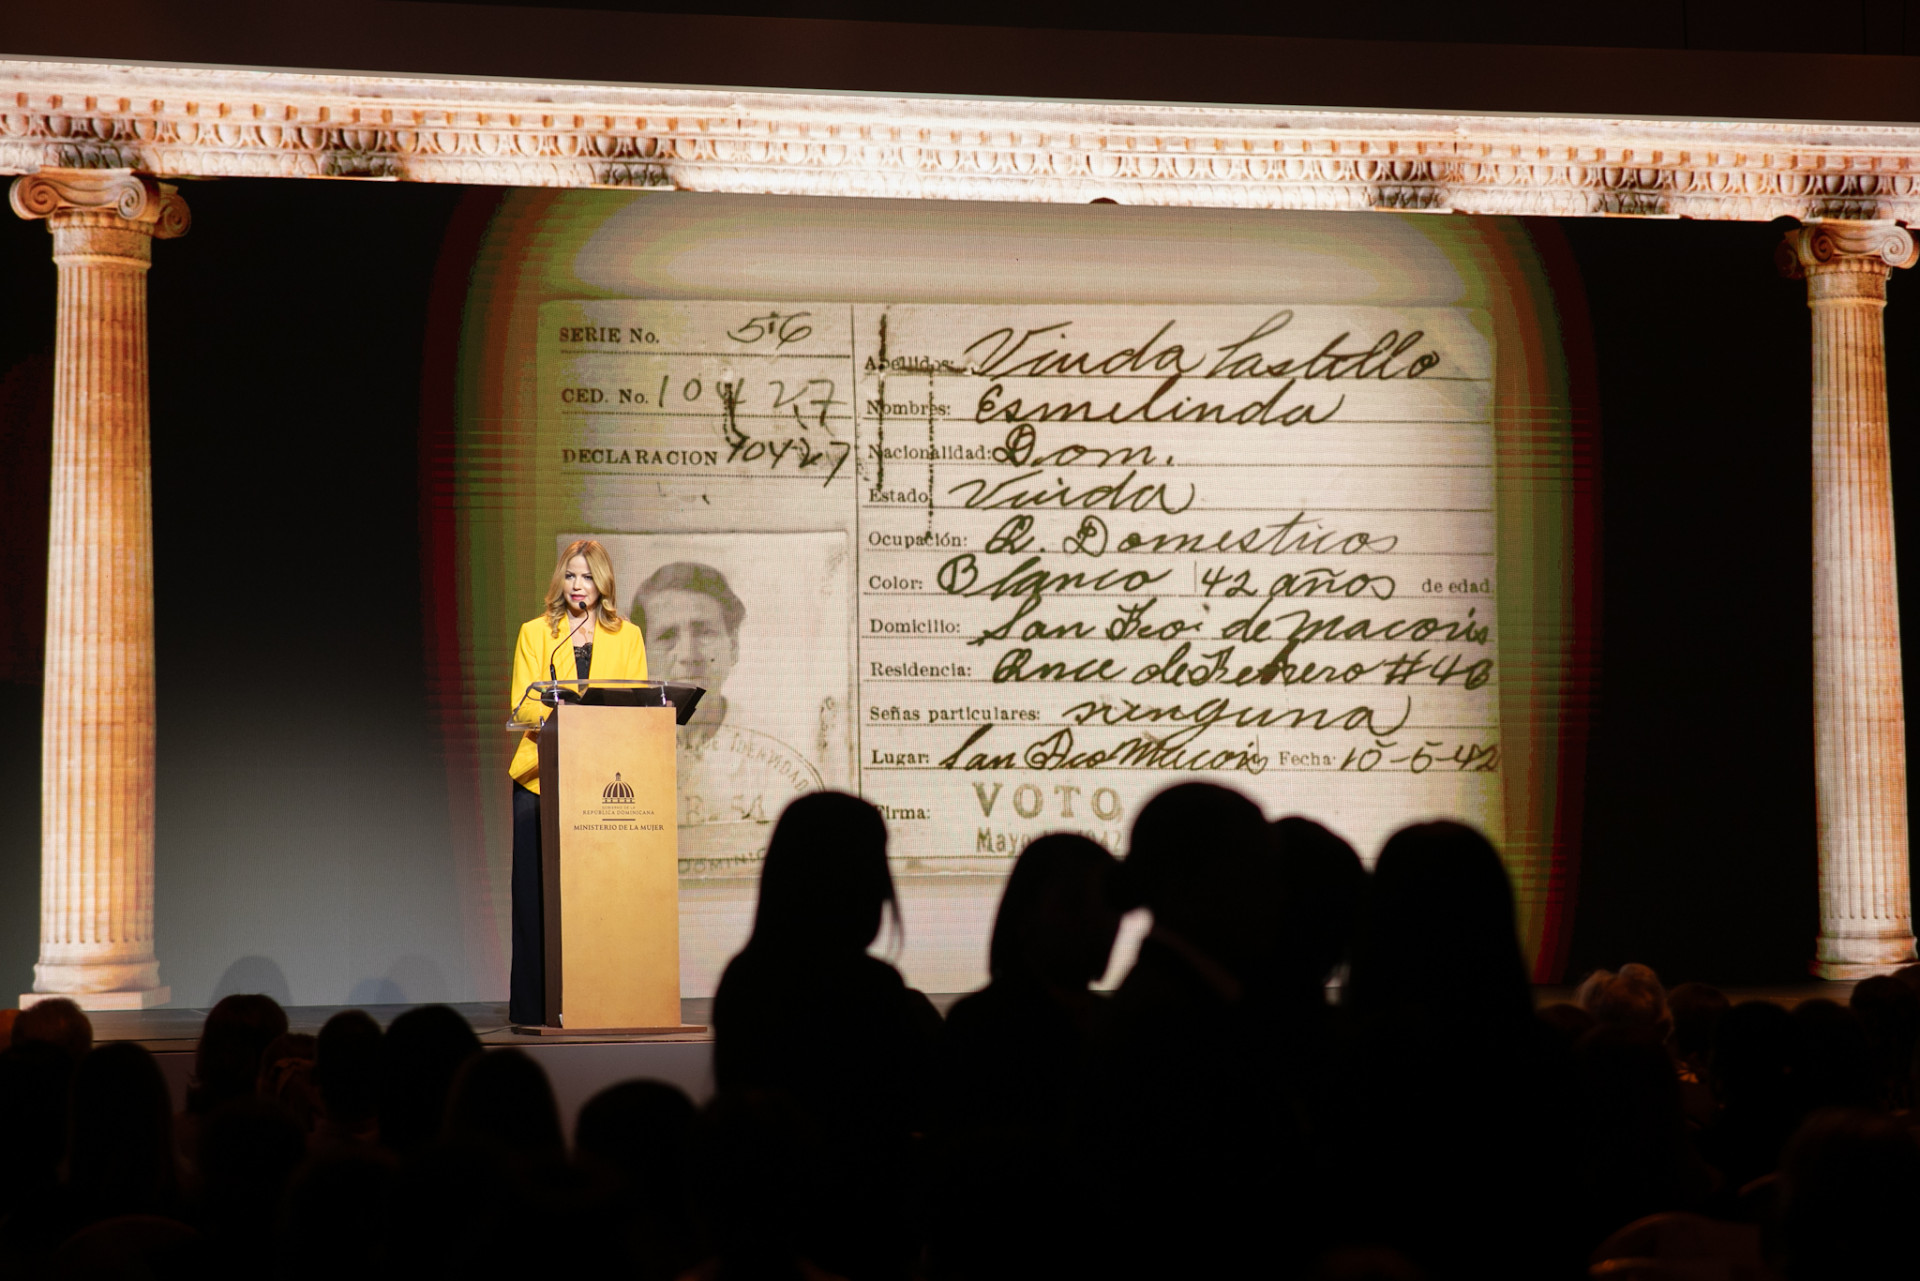 SERIE No. 56
CED. No. 10427
DECLARACION 10427
Apellidos: Viuda Castillo
Nombres: Esmelinda
Nacionalidad: Dom.
Estado Viuda
Ocupación: Q. Domesticos
Color: Blanco 42 años de edad
Domicilio: San Fco. de Macoris
Residencia: Once de Febrero #46
Señas particulares: ninguna
Lugar: San Fco Macoris Fecha: 10-5-42
Firma: VOTO
Mayo
DE IDENTIDAD
GOBIERNO DE LA
REPÚBLICA DOMINICANA
MINISTERIO DE LA MUJER